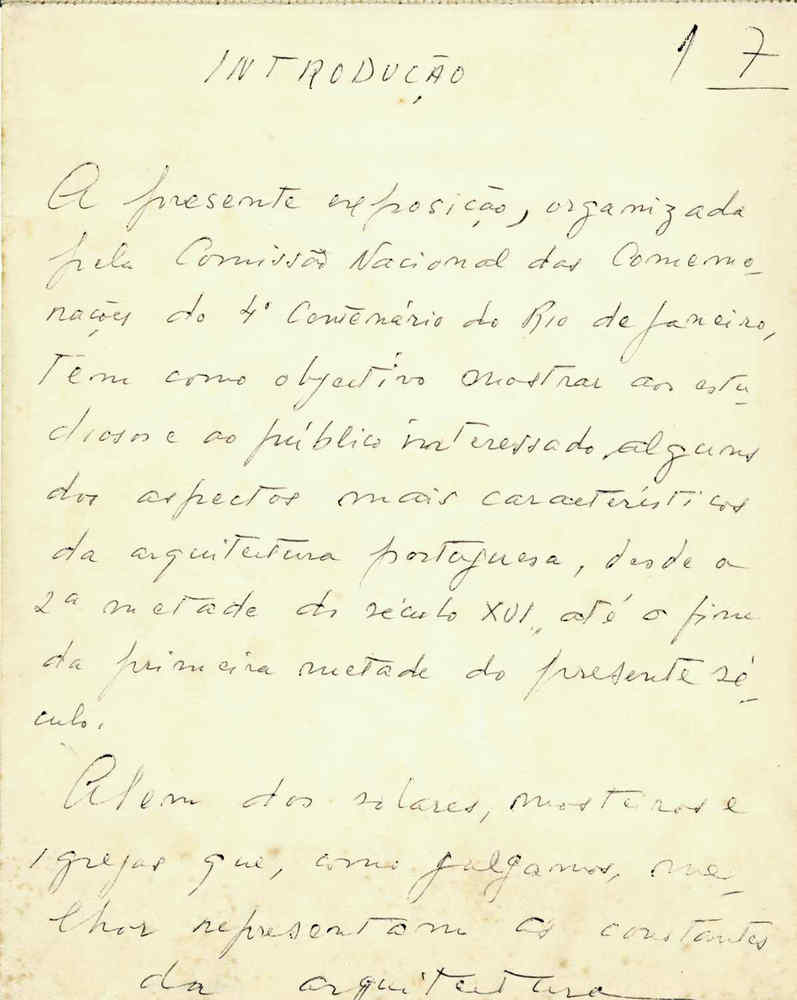 INTRODUÇÃO 1 7
A presente exposição, organizada
pela Comissão Nacional das Comemo-
rações do 4º Centenário do Rio de Janeiro,
tem como objectivo mostrar aos estu-
diosos e ao público interessado, alguns
dos aspectos mais característicos
da arquitectura portuguesa, desde a
2ª metade do século XVI, até o fim
da primeira metade do presente sé-
culo.
Alem dos solares, mosteiros e
igrejas que, como julgamos, me-
lhor representam as constantes
da arquitectura